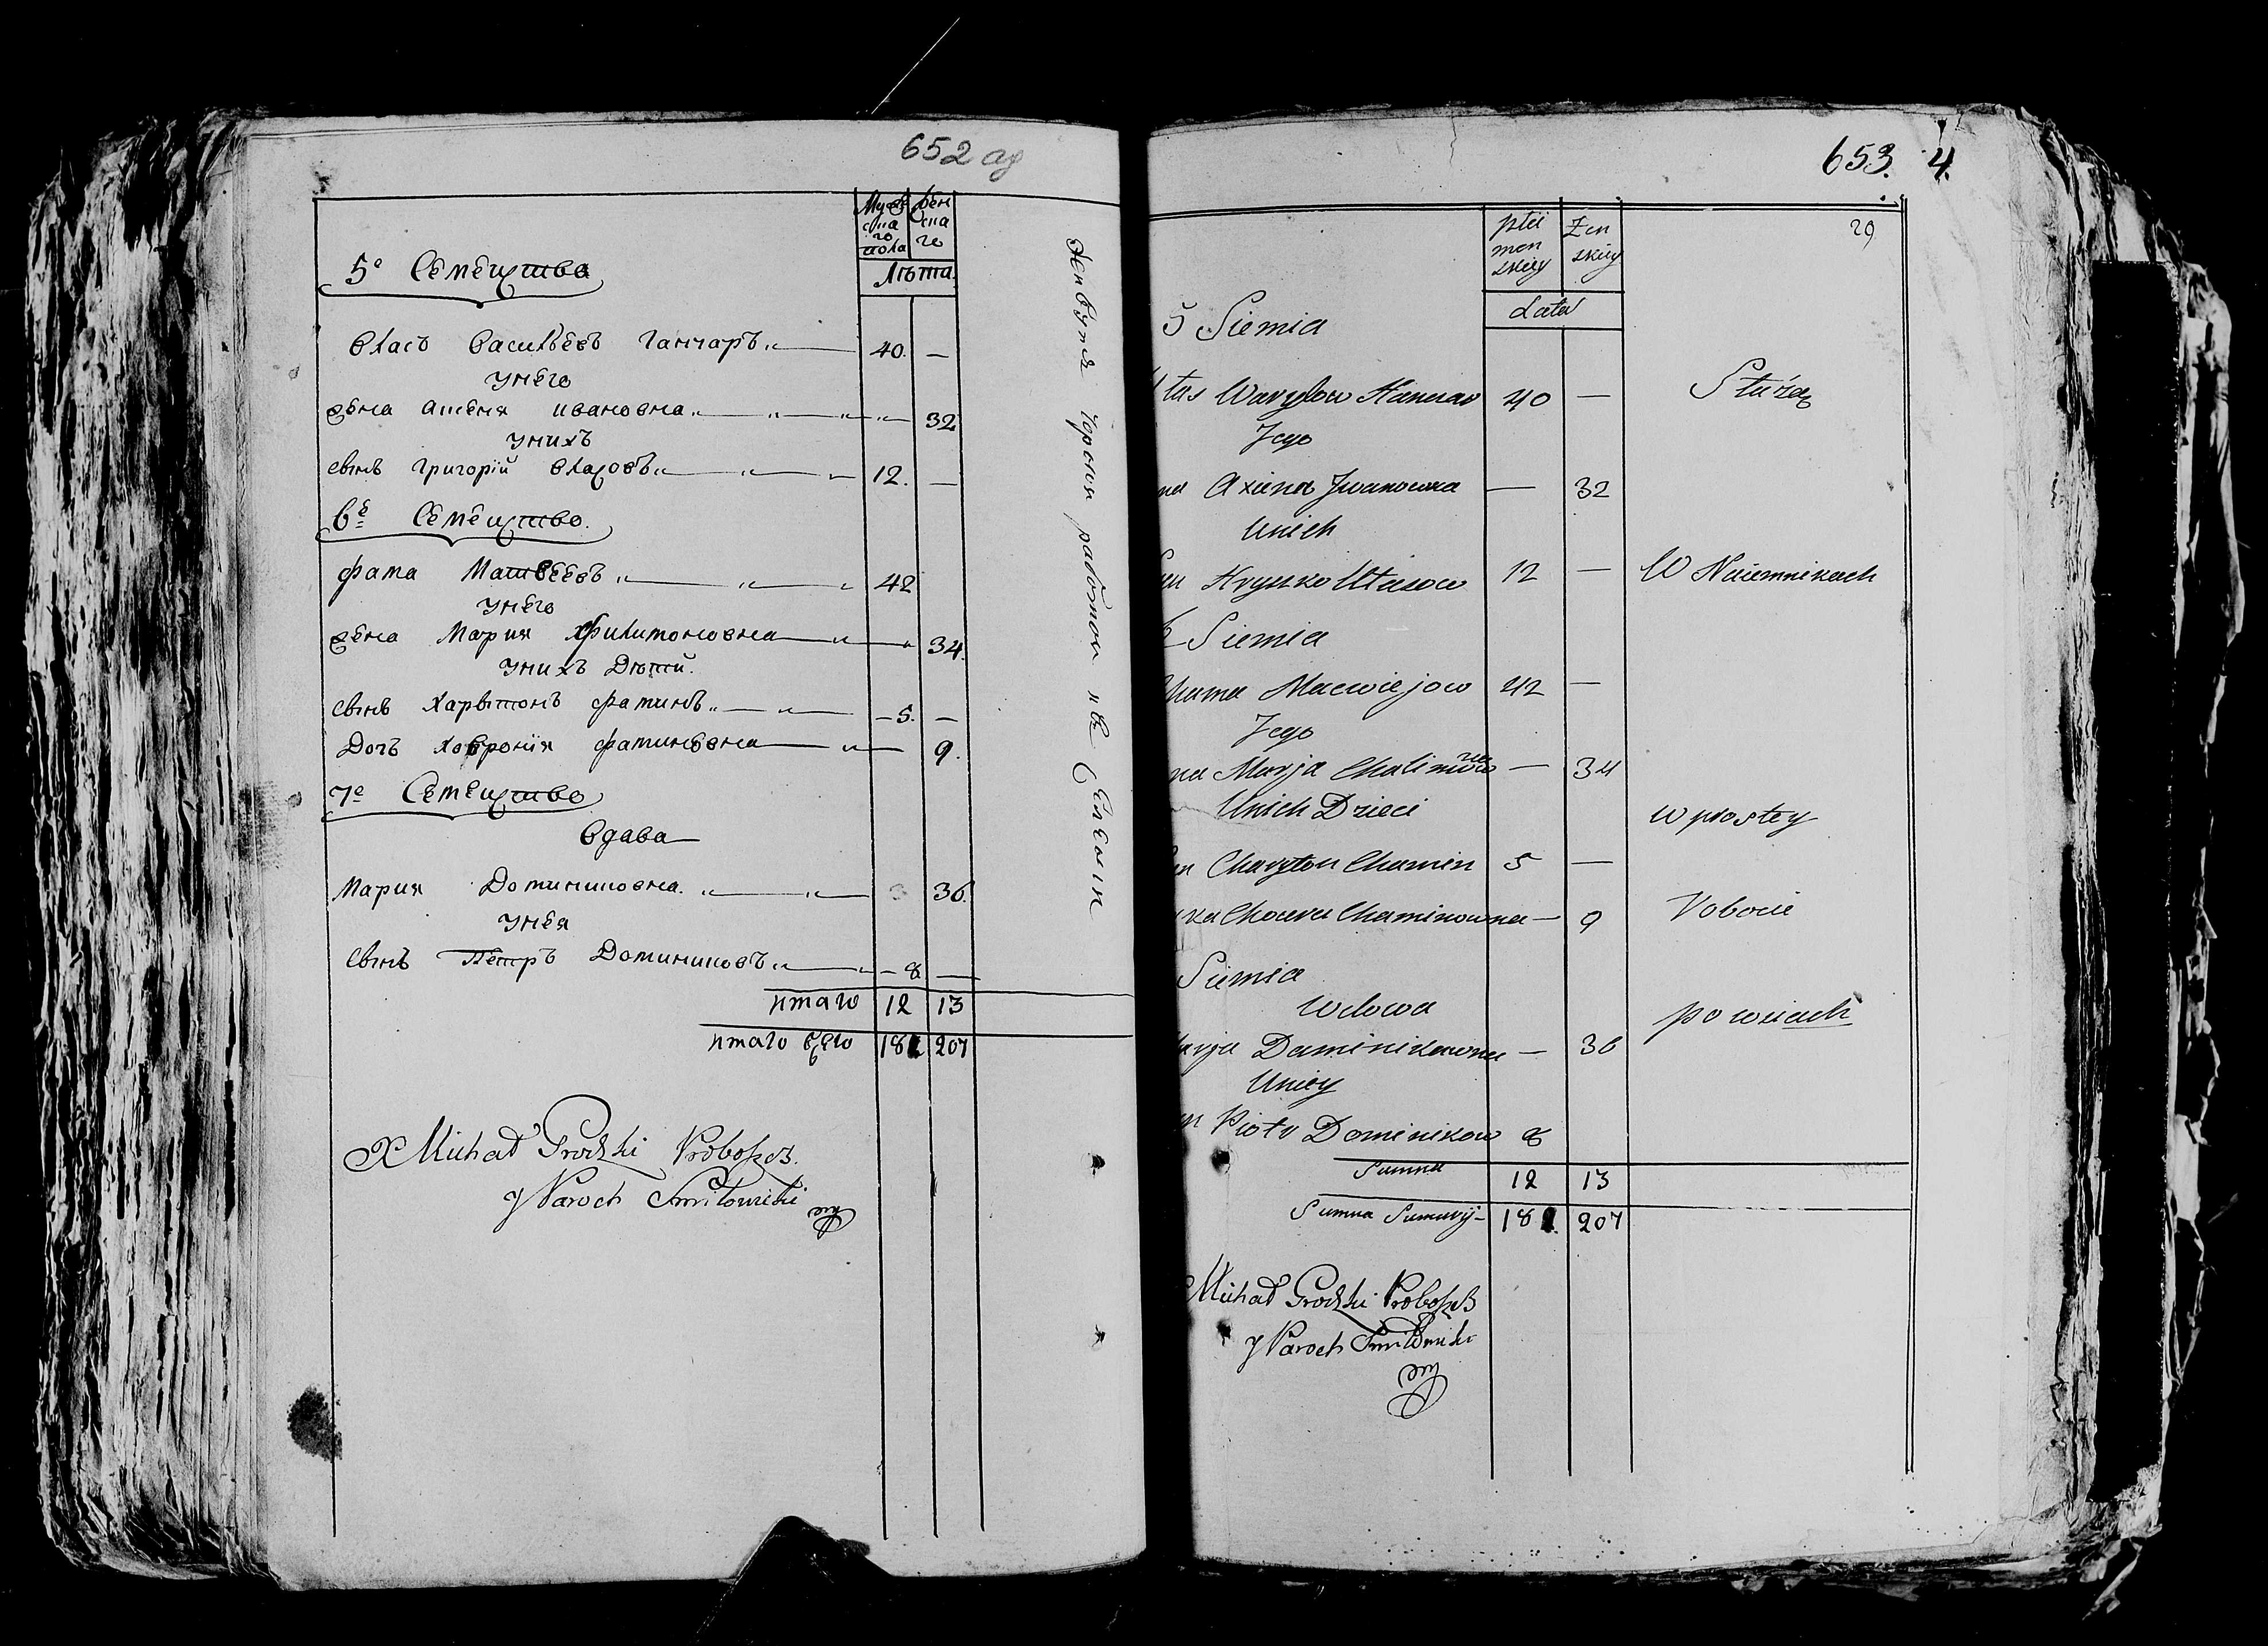 652
Мужескаго пола
Женскаго
Лѣта
5е Семеиство
Власъ Васильевъ Ганчаръ 40. —
У него
жена Аксеня Ивановна 32
У нихъ
сынъ Григорій Власовъ 12. —
6е Семеиство.
Фама Матвеевъ 42
У него
жена Мария Филимоновна 34.
У нихъ Дѣтй.
сынъ Харытонъ Фаминъ — 5. —
Дочъ Ховронія Фаминовна — 9.
7е Семеиство
Вдава
Мария Доминиковна. 36.
У нея
сынъ Пётръ Доминиковъ — 8 —
итаго 12 13
итаго всего 182 207
X Michał Grodzki Proboszcz.
y Paroch Smiłowicki
чорноя работои
653. 4.
29
płci menskiey
Zenskiey
Lata
5 Siemia
Wasylow Hanczar 40 —
Służą
Jego
Axiena Iwanowna — 32
Unich
Hryszko Ułasow 12 —
W Naiemnikach
6 Siemia
Chama Macwiejow 42 —
Jego
na Marja Chalimowna — 34
Unich Dzieci
w prostey
Charyton Chamin 5 —
Chowra Chaminowna — 9
Robocie
Siemia
Wdowa
po wsiach
Daminikowna — 36
Uniey
Piotr Dominikow 8
Summa 12 13
Summa Summarÿ 182. 207
Michał Grodzki Proboszcz
y Paroch Smiłowicki